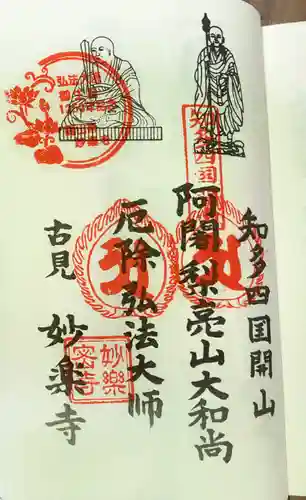 知多四国開山
阿闍梨亮山大和尚
厄除弘法大師
古見 妙楽寺
妙樂密寺